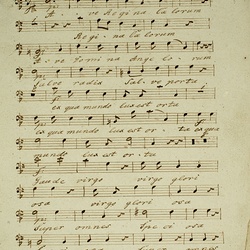 Ave Regina Cælorum
Regina Cælorum
Ave Domina Angelorum
Salve radix Salve porta
ex qua mundo lux est orta
ex qua mundo lux est orta ex qua
mundo lux est orta
Gaude virgo virgo glori
osa virgo gloriosa
Super omnes Speciosa